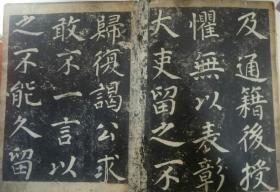 及通籍後授
懼無以表彰
大吏留之不
歸復謁公求
敢不一言以
之不能久留